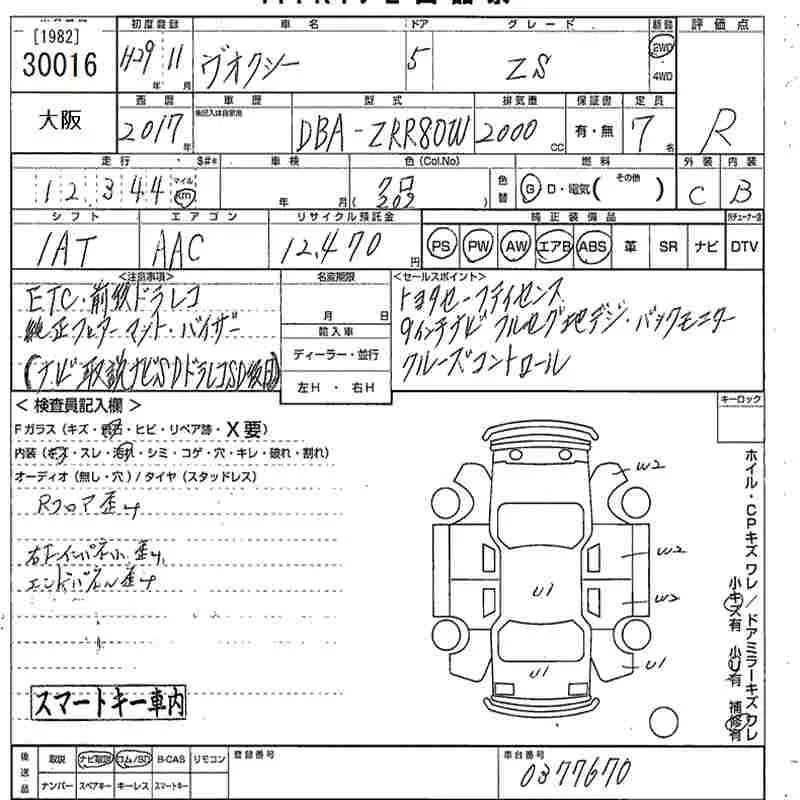 [1982]
30016
大阪
初度登録 車名 ドア グレード 評価点
H29 11 ヴォクシー 5 ZS 2WD
年 月 4WD
西暦 車歴 型式 排気量 保証書 定員
2017 DBA-ZRR80W 2000 有・無 7 R
年 CC 名
走行 $#* 車検 色(Col.No) 燃料 外装 内装
12344 マイル km 年 月 クロ 202 色替 G D・電気( その他 ) C B
シフト エアコン リサイクル預託金 純正装備品
IAT AAC 12,470 円 PS PW AW エアB ABS 革 SR ナビ DTV
<注意事項> 名変期限 <セールスポイント>
ETC・前後ドラレコ
純正フロアーマット・バイザー
(ナビ取説ナビSDドラレコSD後日)
月 日
輸入車
ディーラー・並行
左H ・ 右H
トヨタセーフティセンス
9インチナビ フルセグ地デジ・バックモニター
クルーズコントロール
< 検査員記入欄 >
キーロック
Fガラス(キズ・飛石・ヒビ・リペア跡・X要)
内装(キズ・スレ・汚れ・シミ・コゲ・穴・キレ・破れ・割れ)
オーディオ(無し・穴)/タイヤ(スタッドレス)
Rフロア歪み
エンドパネル歪み
スマートキー車内
W2
W2
W2
U1
U1
U1
ホイル・CPキズ ワレ/ドアミラーキズ ワレ
小キズ有 小U有 補修有
後送品 取説 ナビ取説 ロム/SD B-CAS リモコン 登録番号 車台番号
ナンバー スペアキー キーレス スマートキー 0377670